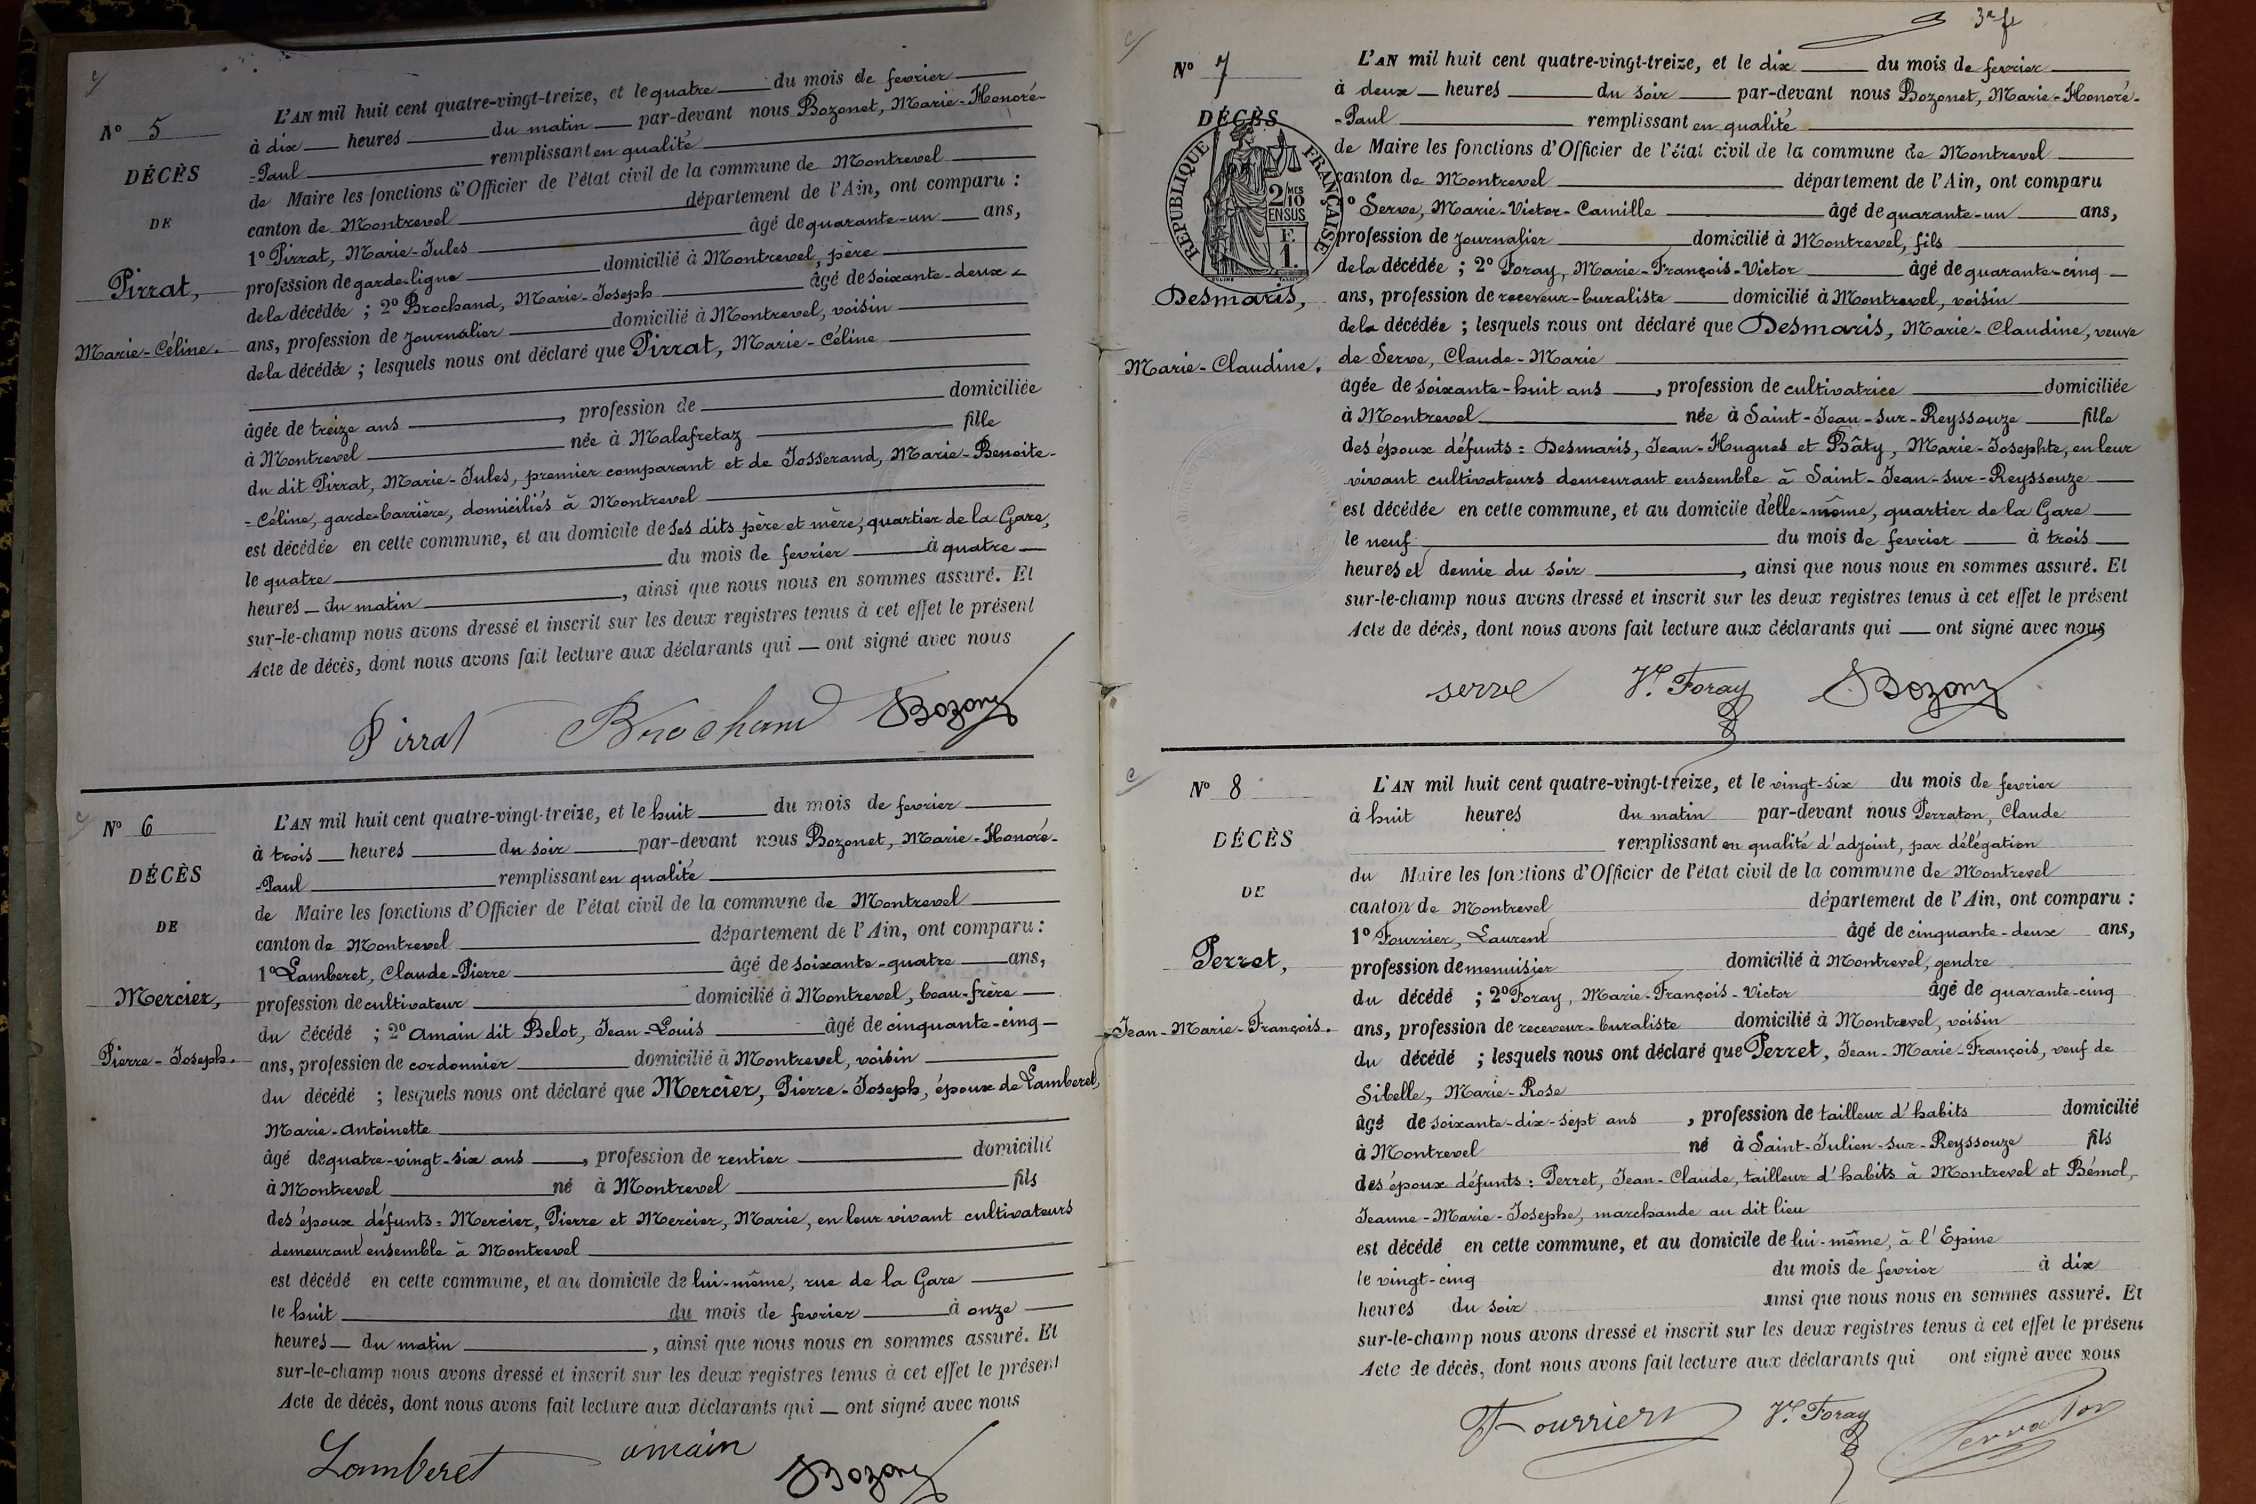 N° 5
DÉCÈS
DE
Pirrat,
Marie-Céline.
L'AN mil huit cent quatre-vingt-treize, et le quatre du mois de fevrier
à dix heures du matin par-devant nous Bozonet, Marie-Honoré-
-Paul remplissant en qualité
de Maire les fonctions d'Officier de l'état civil de la commune de Montrevel
canton de Montrevel département de l'Ain, ont comparu :
1° Pirrat, Marie-Jules âgé de quarante-un ans,
profession de garde-ligne domicilié à Montrevel, père
de la décédée ; 2° Brochand, Marie-Joseph âgé de soixante-deux
ans, profession de journalier domicilié à Montrevel, voisin
de la décédée ; lesquels nous ont déclaré que Pirrat, Marie-Céline
âgée de treize ans , profession de domiciliée
à Montrevel née à Malafretaz fille
du dit Pirrat, Marie-Jules, premier comparant et de Josserand, Marie-Benoite-
-Céline, garde-barrière, domiciliés à Montrevel
est décédée en cette commune, et au domicile de ses dits père et mère, quartier de la Gare,
le quatre du mois de fevrier à quatre
heures du matin , ainsi que nous nous en sommes assuré. Et
sur-le-champ nous avons dressé et inscrit sur les deux registres tenus à cet effet le présent
Acte de décès, dont nous avons fait lecture aux déclarants qui ont signé avec nous
Pirrat Brochand Bozonet
N° 6
DÉCÈS
DE
Mercier,
Pierre-Joseph.
L'AN mil huit cent quatre-vingt-treize, et le huit du mois de fevrier
à trois heures du soir par-devant nous Bozonet, Marie-Honoré-
-Paul remplissant en qualité
de Maire les fonctions d'Officier de l'état civil de la commune de Montrevel
canton de Montrevel département de l'Ain, ont comparu :
1° Lamberet, Claude-Pierre âgé de soixante-quatre ans,
profession de cultivateur domicilié à Montrevel, beau-frère
du décédé ; 2° Amain dit Belot, Jean-Louis âgé de cinquante-cinq
ans, profession de cordonnier domicilié à Montrevel, voisin
du décédé ; lesquels nous ont déclaré que Mercier, Pierre-Joseph, époux de Lamberet,
Marie-Antoinette
âgé de quatre-vingt-six ans , profession de rentier domicilié
à Montrevel né à Montrevel fils
des époux défunts : Mercier, Pierre et Mercier, Marie, en leur vivant cultivateurs
demeurant ensemble à Montrevel
est décédé en cette commune, et au domicile de lui-même, rue de la Gare
le huit du mois de fevrier à onze
heures du matin , ainsi que nous nous en sommes assuré. Et
sur-le-champ nous avons dressé et inscrit sur les deux registres tenus à cet effet le présent
Acte de décès, dont nous avons fait lecture aux déclarants qui ont signé avec nous
Lamberet amain Bozonet
N° 7
DÉCÈS
RÉPUBLIQUE FRANÇAISE
2 MES
10
EN SUS
F.
1.
Desmaris,
Marie-Claudine.
L'AN mil huit cent quatre-vingt-treize, et le dix du mois de fevrier
à deux heures du soir par-devant nous Bozonet, Marie-Honoré-
-Paul remplissant en qualité
de Maire les fonctions d'Officier de l'état civil de la commune de Montrevel
canton de Montrevel département de l'Ain, ont comparu
1° Serve, Marie-Victor-Camille âgé de quarante-un ans,
profession de journalier domicilié à Montrevel, fils
de la décédée ; 2° Foray, Marie-François-Victor âgé de quarante-cinq
ans, profession de receveur-buraliste domicilié à Montrevel, voisin
de la décédée ; lesquels nous ont déclaré que Desmaris, Marie-Claudine, veuve
de Serve, Claude-Marie
âgée de soixante-huit ans , profession de cultivatrice domiciliée
à Montrevel née à Saint-Jean-sur-Reyssouze fille
des époux défunts : Desmaris, Jean-Hugues et Bâty, Marie-Josephte, en leur
vivant cultivateurs demeurant ensemble à Saint-Jean-sur-Reyssouze
est décédée en cette commune, et au domicile d'elle-même, quartier de la Gare
le neuf du mois de fevrier à trois
heures et demie du soir , ainsi que nous nous en sommes assuré. Et
sur-le-champ nous avons dressé et inscrit sur les deux registres tenus à cet effet le présent
Acte de décès, dont nous avons fait lecture aux déclarants qui ont signé avec nous
serve Vr. Foray Bozonet
N° 8
DÉCÈS
DE
Perret,
Jean-Marie-François.
L'AN mil huit cent quatre-vingt-treize, et le vingt-six du mois de fevrier
à huit heures du matin par-devant nous Perraton, Claude
remplissant en qualité d'adjoint, par délégation
du Maire les fonctions d'Officier de l'état civil de la commune de Montrevel
canton de Montrevel département de l'Ain, ont comparu :
1° Fourrier, Laurent âgé de cinquante-deux ans,
profession de menuisier domicilié à Montrevel, gendre
du décédé ; 2° Foray, Marie-François-Victor âgé de quarante-cinq
ans, profession de receveur-buraliste domicilié à Montrevel, voisin
du décédé ; lesquels nous ont déclaré que Perret, Jean-Marie-François, veuf de
Sibelle, Marie-Rose
âgé de soixante-dix-sept ans , profession de tailleur d'habits domicilié
à Montrevel né à Saint-Julien-sur-Reyssouze fils
des époux défunts : Perret, Jean-Claude, tailleur d'habits à Montrevel et Bémol,
Jeanne-Marie-Josephe, marchande au dit lieu
est décédé en cette commune, et au domicile de lui-même, à l'Epine
le vingt-cinq du mois de fevrier à dix
heures du soir ainsi que nous nous en sommes assuré. Et
sur-le-champ nous avons dressé et inscrit sur les deux registres tenus à cet effet le présent
Acte de décès, dont nous avons fait lecture aux déclarants qui ont signé avec nous
Fourrier Vr. Foray Perraton